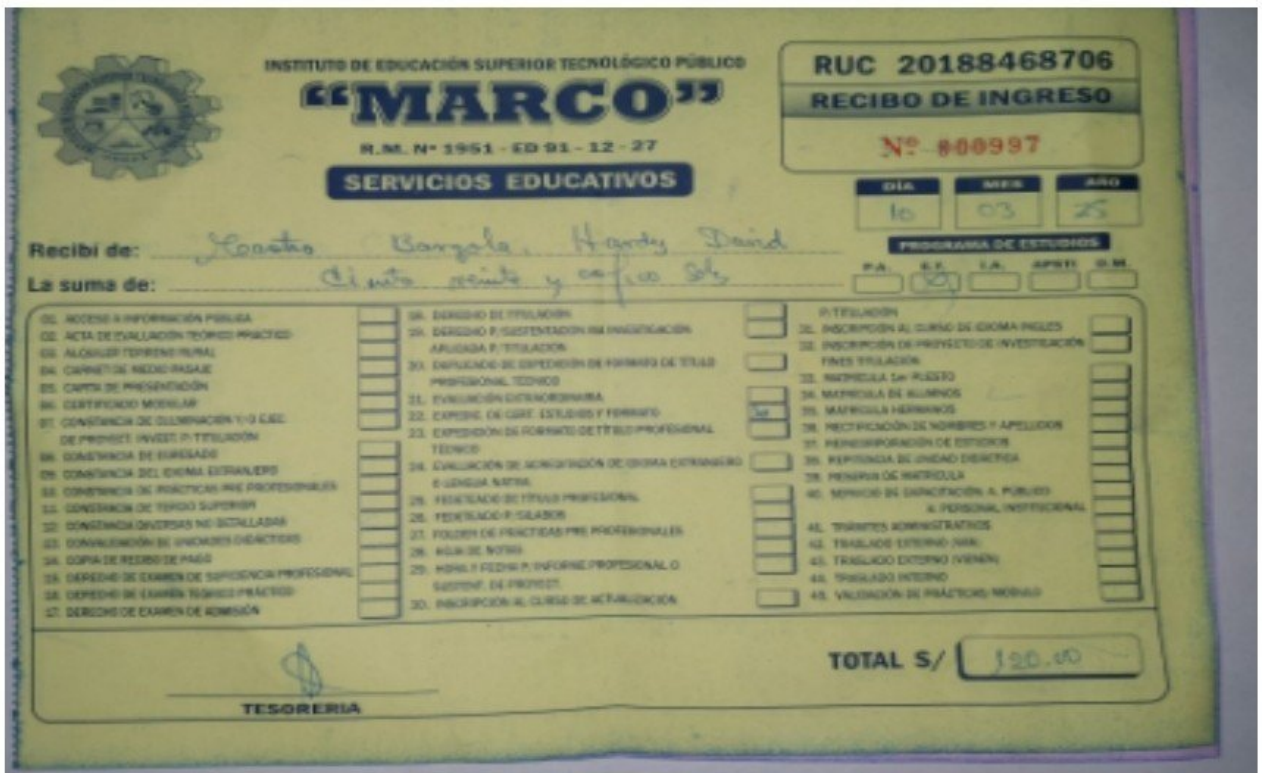 INSTITUTO DE EDUCACIÓN SUPERIOR TECNOLÓGICO PÚBLICO
“MARCO”
R.M. Nº 1951 - ED 91 - 12 - 27
SERVICIOS EDUCATIVOS
RUC 20188468706
RECIBO DE INGRESO
Nº 000997
DÍA MES AÑO
10 03 25
Recibí de: Hardy David
PROGRAMA DE ESTUDIOS
P.A. I.A. APSTI D.M.
La suma de: Ciento veinte y
01. ACCESO A INFORMACIÓN PÚBLICA
02. ACTA DE EVALUACIÓN TEÓRICO PRÁCTICO
03. ALQUILER TERRENO RURAL
04. CARNET DE MEDIO PASAJE
05. CARTA DE PRESENTACIÓN
06. CERTIFICADO MODULAR
07. CONSTANCIA DE CULMINACIÓN Y/O EJEC.
DE PROYECT. INVEST. P/TITULACIÓN
08. CONSTANCIA DE EGRESADO
09. CONSTANCIA DEL IDIOMA EXTRANJERO
10. CONSTANCIA DE PRÁCTICAS PRE PROFESIONALES
11. CONSTANCIA DE TERCIO SUPERIOR
12. CONSTANCIA DIVERSAS NO DETALLADAS
13. CONVALIDACIÓN DE UNIDADES DIDÁCTICAS
14. COPIA DE RECIBO DE PAGO
15. DERECHO DE EXAMEN DE SUFICIENCIA PROFESIONAL
16. DERECHO DE EXAMEN TEÓRICO PRÁCTICO
17. DERECHO DE EXAMEN DE ADMISIÓN
18. DERECHO DE TITULACIÓN
19. DERECHO P/SUSTENTACIÓN INVESTIGACIÓN
APLICADA P/TITULACIÓN
20. DUPLICADO DE EXPEDICIÓN DE FORMATO DE TÍTULO
PROFESIONAL TÉCNICO
21. EVALUACIÓN EXTRAORDINARIA
22. EXPEDIC. DE CERT. ESTUDIOS Y FORMATO
23. EXPEDICIÓN DE FORMATO DE TÍTULO PROFESIONAL
TÉCNICO
24. EVALUACIÓN DE ACREDITACIÓN DE IDIOMA EXTRANJERO
E LENGUA NATIVA
25. FEDETEADO DE TÍTULO PROFESIONAL
26. FEDETEADO P/SÍLABOS
27. FOLDER DE PRÁCTICAS PRE PROFESIONALES
28. HOJA DE NOTAS
29. HORA Y FECHA P. INFORME PROFESIONAL O
SUSTENT. DE PROYECT.
30. INSCRIPCIÓN AL CURSO DE ACTUALIZACIÓN
P/TITULACIÓN
31. INSCRIPCIÓN AL CURSO DE IDIOMA INGLES
32. INSCRIPCIÓN DE PROYECTO DE INVESTIGACIÓN
FINES TITULACIÓN
33. MATRÍCULA 1er PUESTO
34. MATRÍCULA DE ALUMNOS
35. MATRÍCULA HERMANOS
36. RECTIFICACIÓN DE NOMBRES Y APELLIDOS
37. REINCORPORACIÓN DE ESTUDIOS
38. REPITENCIA DE UNIDAD DIDÁCTICA
39. RESERVA DE MATRÍCULA
40. SERVICIO DE CAPACITACIÓN A. PÚBLICO
A. PERSONAL INSTITUCIONAL
41. TRÁMITES ADMINISTRATIVOS
42. TRASLADO EXTERNO (VAN)
43. TRASLADO EXTERNO (VIENEN)
44. TRASLADO INTERNO
45. VALIDACIÓN DE PRÁCTICAS/MÓDULO
TESORERIA
TOTAL S/ 120.00